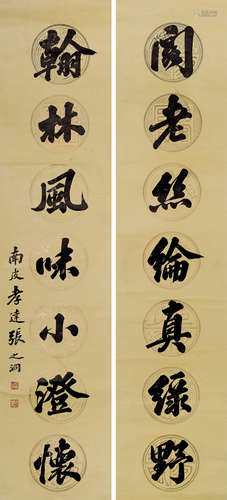 閣老絲綸真綠野
翰林風味小澄懷
南皮孝達張之洞